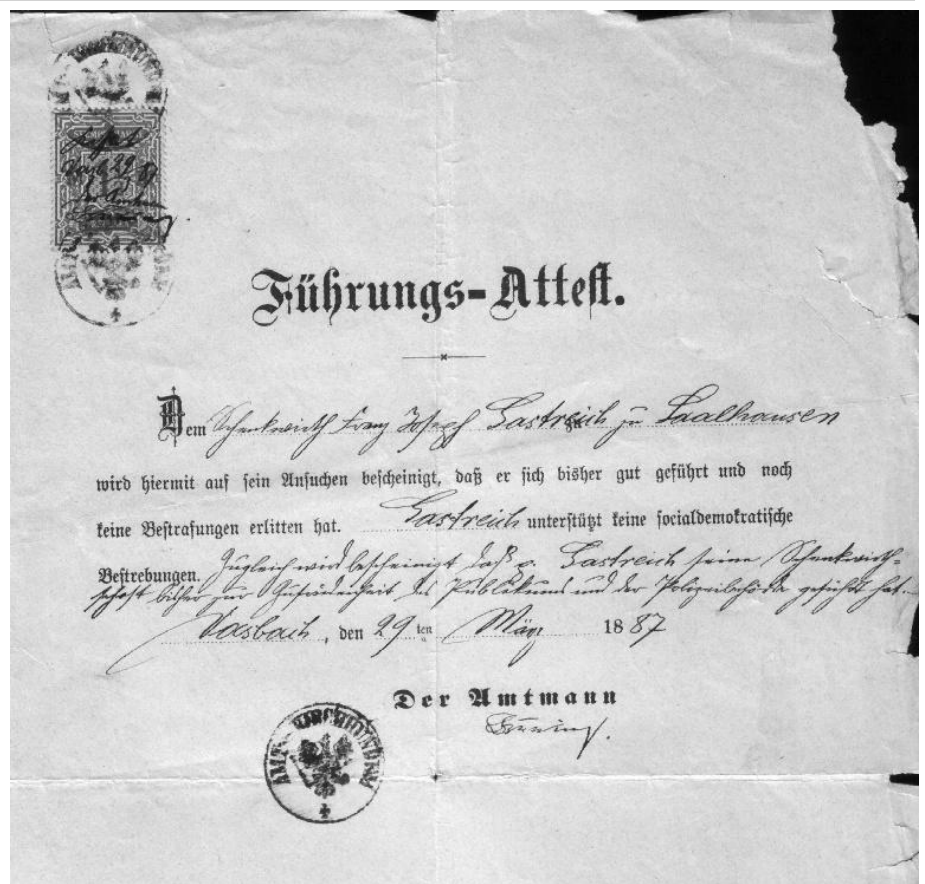 AMT KIRCHHUNDEM
1
29
87
AMT KIRCHHUNDEM
Führungs-Attest.
Dem Schenkwirth Franz Joseph Gastreich zu Saalhausen
wird hiermit auf sein Ansuchen bescheinigt, daß er sich bisher gut geführt und noch
keine Bestrafungen erlitten hat. Gastreich unterstützt keine socialdemokratische
Bestrebungen. Zugleich wird bescheinigt daß p. Gastreich seine Schenkwirth-
schaft bisher zur Zufriedenheit des Publikums und der Polizeibehörde geführt hat.
den 29 ten März 1887
Der Amtmann
AMT KIRCHHUNDEM